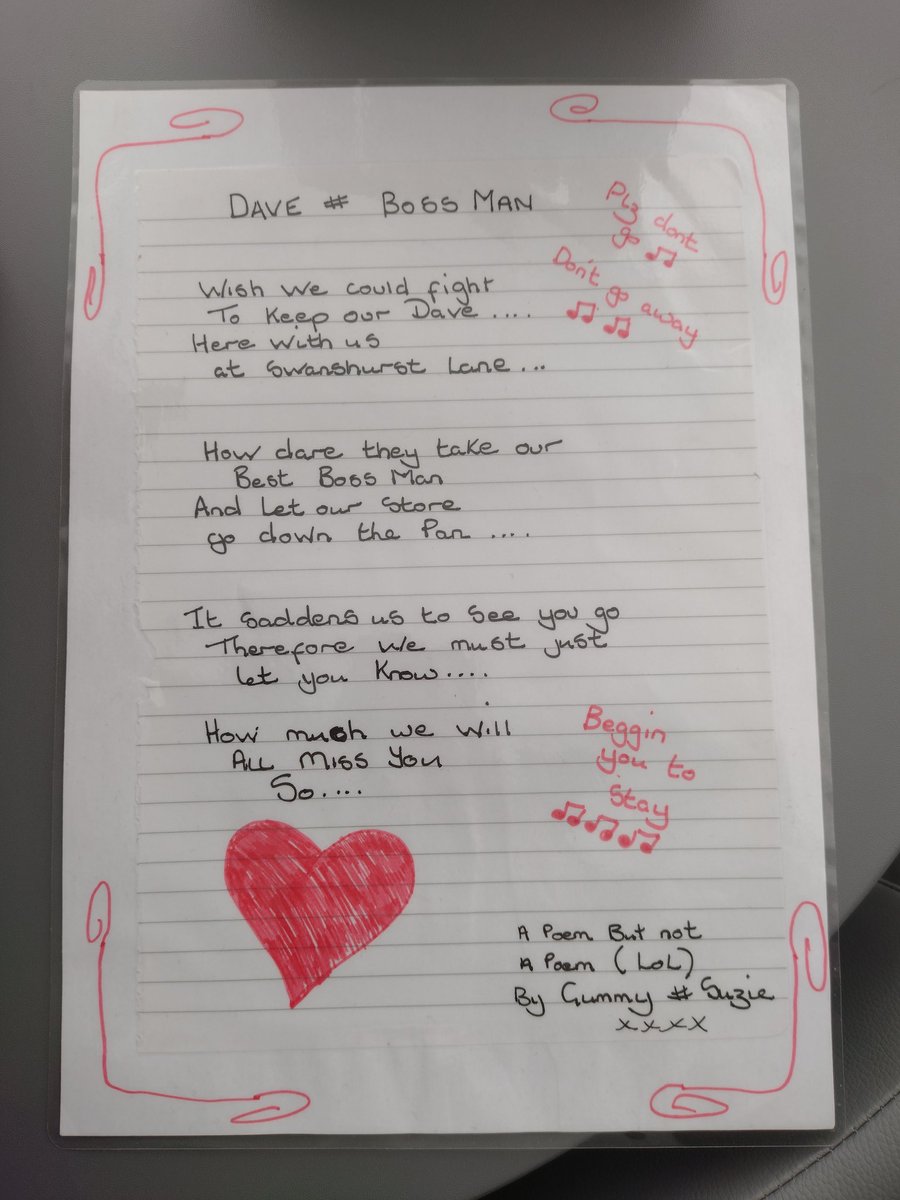 DAVE # BOSS MAN
Plz dont
go
Don't go away
Wish we could fight
To Keep our Dave ....
Here with us
at Swanshurst Lane...
How dare they take our
Best Boss Man
And Let our Store
go down the Pan ....
It saddens us to see you go
Therefore we must just
let you Know....
How much we will
ALL MISS You
So....
Beggin
you to
Stay
A Poem But not
A Poem (LOL)
By Gummy # Suzie
xxxx